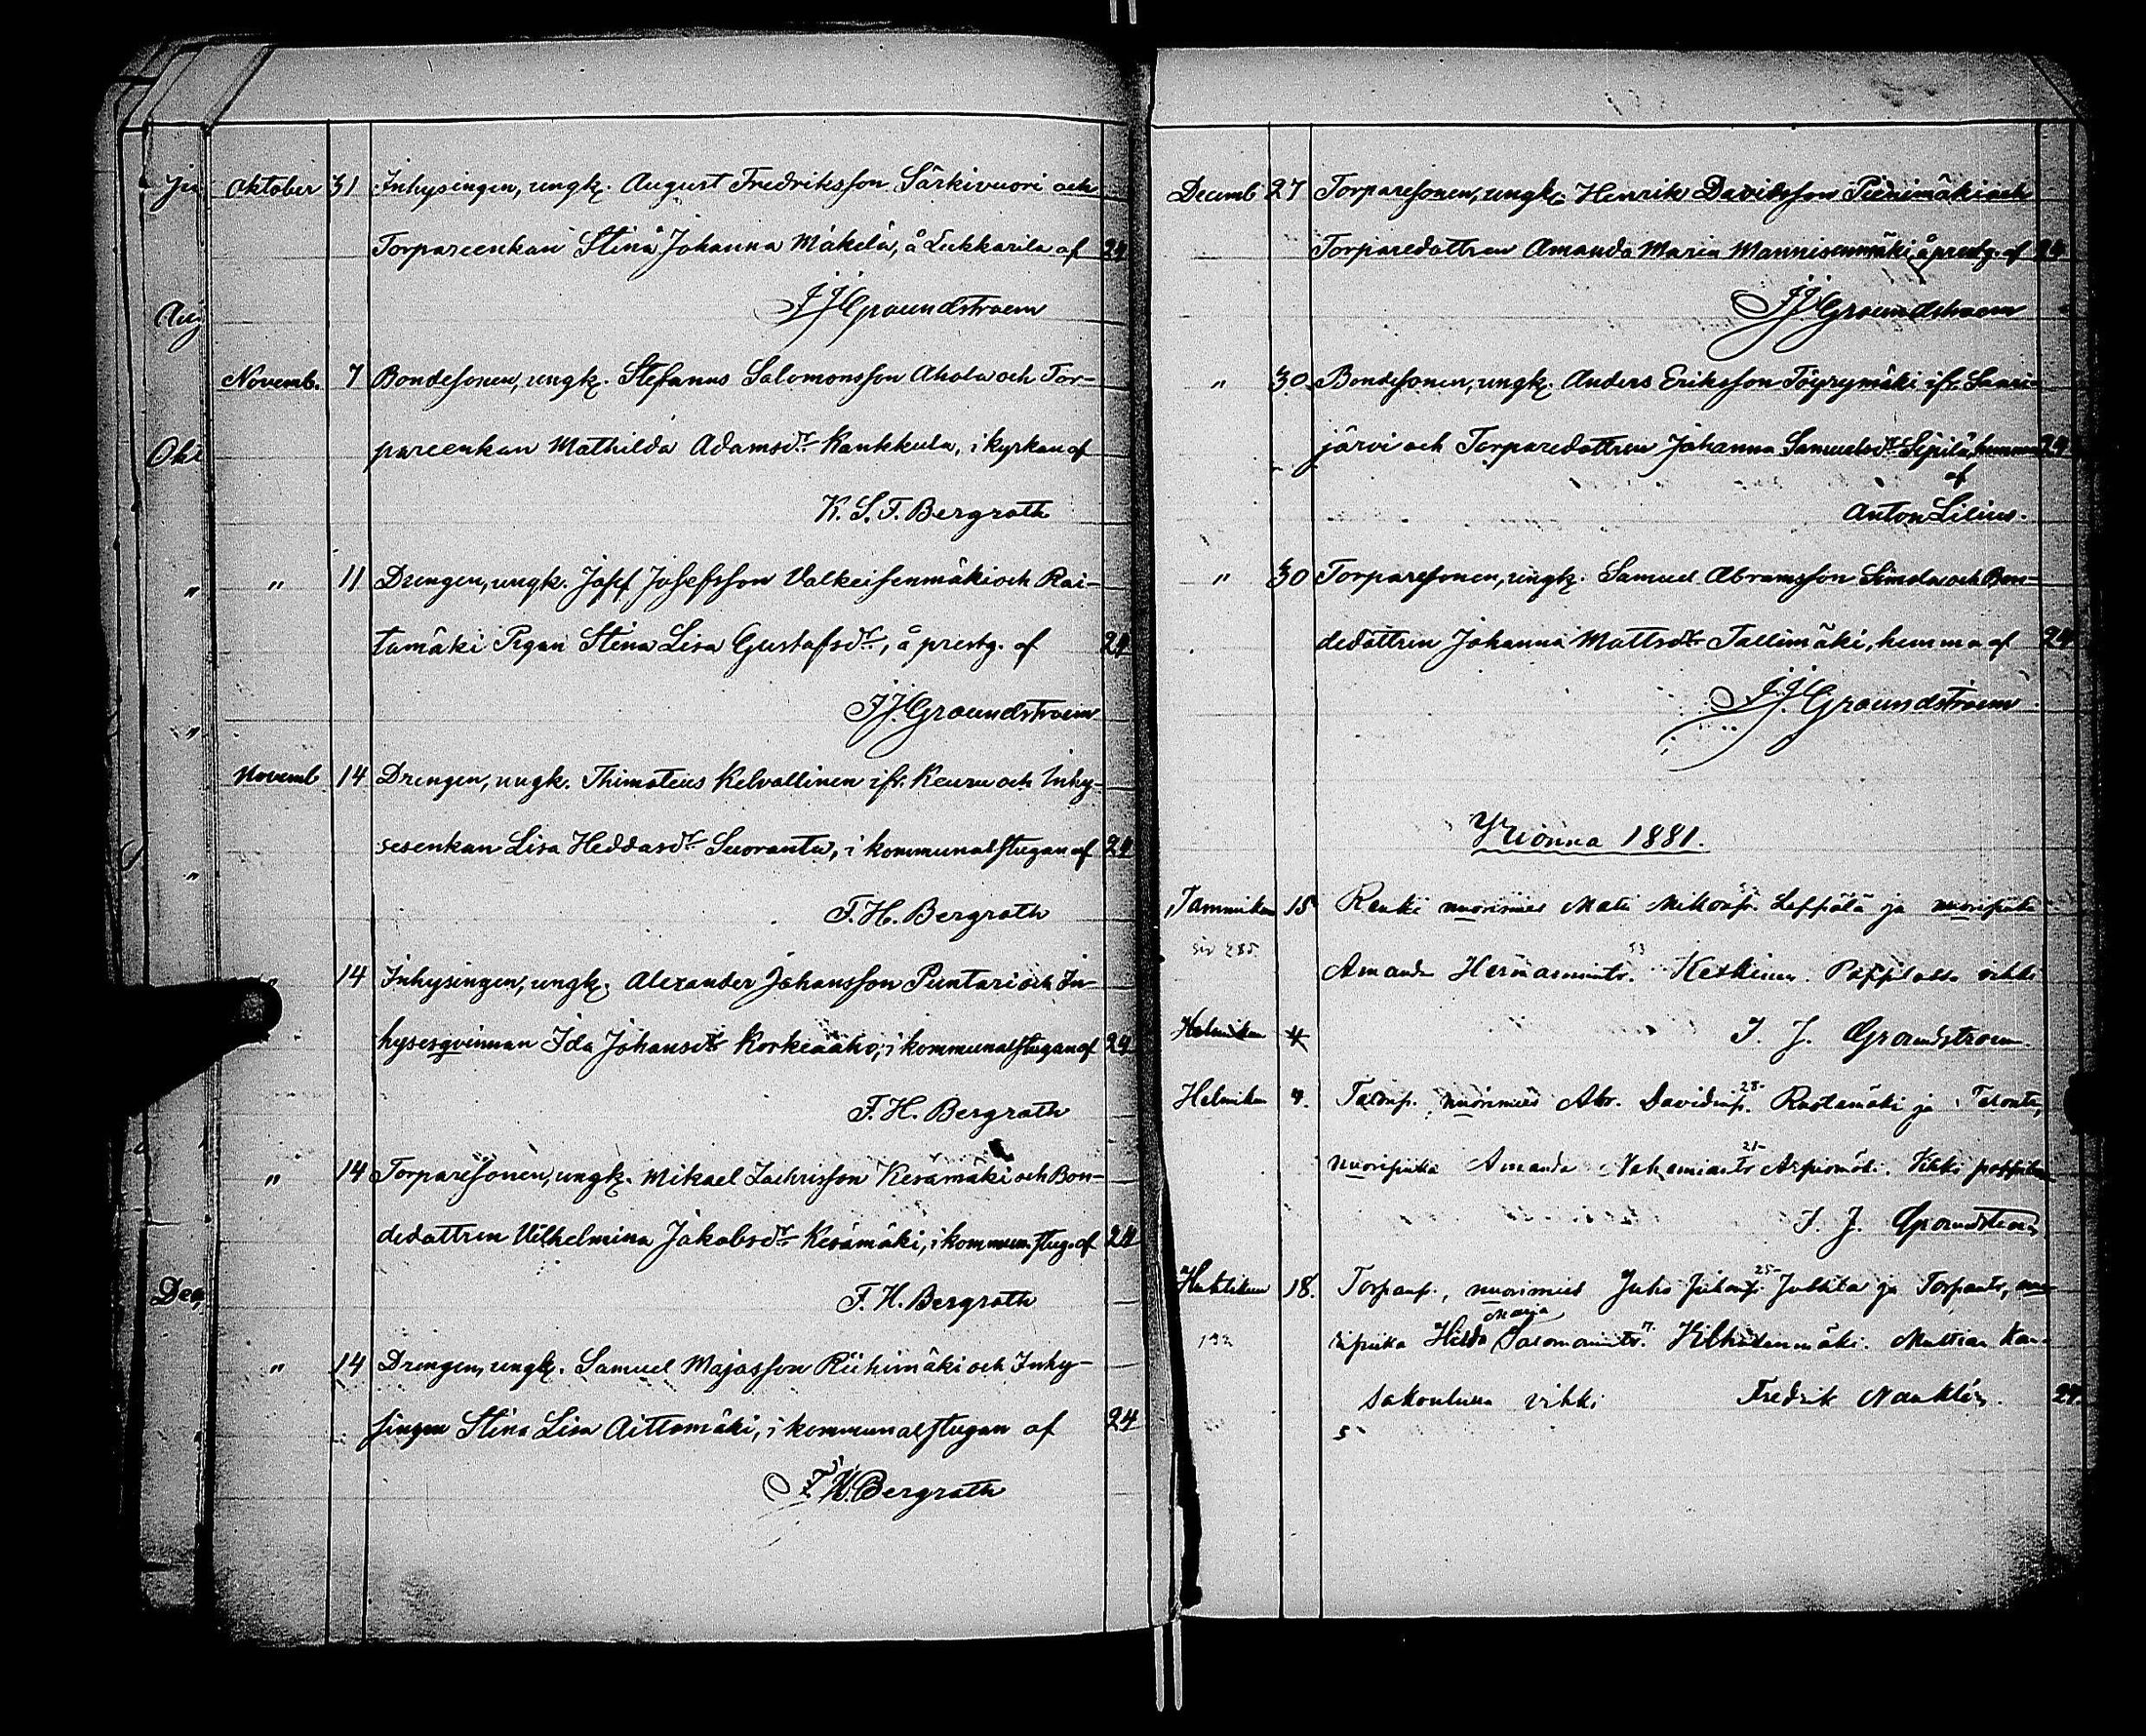 Oktober 31 Inhysingen, ungk. August Fredriksson Särkivuori och
Torpareenkan Stina Johanna Mäkelä, å Lukkarila af 24
F J Groundstroem
Novemb. 7 Bondesonen, ungk. Stefanus Salomonsson Ahola och Tor-
pareenkan Mathilda Adamsdr Kankkula, i kyrkan af
K. S. F. Bergroth
" 11 Drengen, ungk. Josef Josefsson Valkeisenmäki och Rai-
tamäki Pigan Stina Lisa Gustafsdr, å prestg. af 24
F J Groundstroem
Novemb 14 Drengen, ungk. Thimoteus Kelvallinen ifr. Keuru och Inhy-
sesenkan Lisa Heddasdr Suoranta, i kommunalstugan af 24
F. H. Bergroth
" 14 Inhysingen, ungk. Alexander Johansson Puntari och In-
hysesqvinnan Ida Johansdr Korkeaaho, i kommunalstugan af 24
F. H. Bergroth
" 14 Torparesonen, ungk. Mikael Zachrisson Kesämäki och Bon-
dedottren Vilhelmina Jakobsdr Kesämäki, i kommun.stug. af 24
F. H. Bergroth
" 14 Drengen, ungk. Samuel Majasson Riihimäki och Inhy-
singen Stina Lisa Aittomäki, i kommunalstugan af 24
F. H. Bergroth
Decemb 27 Torparesonen, ungk. Henrik Davidsson Pienimäki och
Torparedottren Amanda Maria Mannisenmäki, å prestg. af 24
F J Groundstroem
" 30 Bondesonen, ungk. Anders Eriksson Töyrymäki ifr. Saari-
järvi och Torparedottren Johanna Samuelsdr Sipilä, hemma 24
af
Anton Lilius.
" 30 Torparesonen, ungk. Samuel Abramsson Simola och Bon-
dedottren Johanna Mattsdr Tallimäki, hemma af 24
F. J. Groundstroem
Wuonna 1881.
Tammikuu 15 Renki nuorimies Matti Leppälä ja nuoripiika
siv 285 Amanda Hermannintr. Pappilassa vihki
Helmikuu 4 F. J. Groundstroem
Helmikuu 4. Talonp. nuorimies Abr. Davidinp. 28 Rautamäki ja Talontr,
nuoripiika Amanda Nehemiantr 21 Vihki pappilassa
F. J. Groundstroem
Huhtikuu 18. Torpanp., nuorimies Juho 25 Juhonp. ja Torpantr, nuo-
192 ripiika Hilda Maria Salomonintr. Multian Kan-
sakoululla vihki Fredrik Nauklér. 24.
5